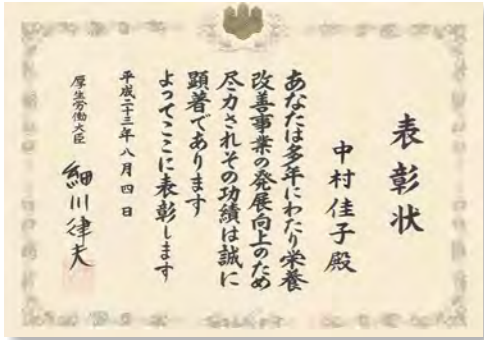 表彰状
中村佳子殿
あなたは多年にわたり栄養
改善事業の発展向上のため
尽力されその功績は誠に
顕著であります
よってここに表彰します
平成二十三年八月四日
厚生労働大臣 細川律夫